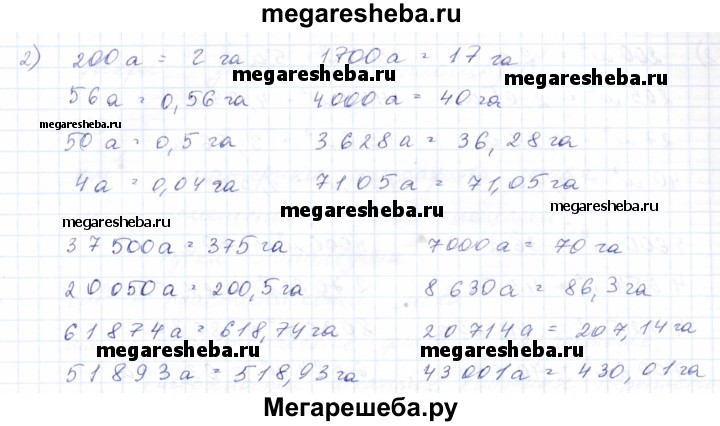 megaresheba.ru
2) 200а = 2 га 1700а = 17 га
megaresheba.ru megaresheba.ru
56а = 0,56 га 4000а = 40 га
megaresheba.ru
50 а = 0,5 га 3 628а = 36,28 га
4а = 0,04 га 7105а = 71,05 га
megaresheba.ru megaresheba.ru megaresheba.ru
37 500а = 375 га 7000а = 70 га
20 050а = 200,5 га 8 630а = 86,3 га
61 874а = 618,74 га 20 714а = 207,14 га
megaresheba.ru megaresheba.ru
51 893а = 518,93 га 43 001а = 430,01 га
Мегарешеба.ру